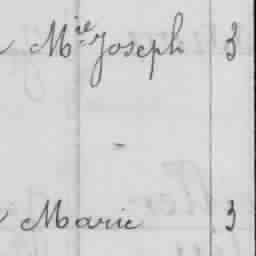 Mie Joseph 3
Marie 3